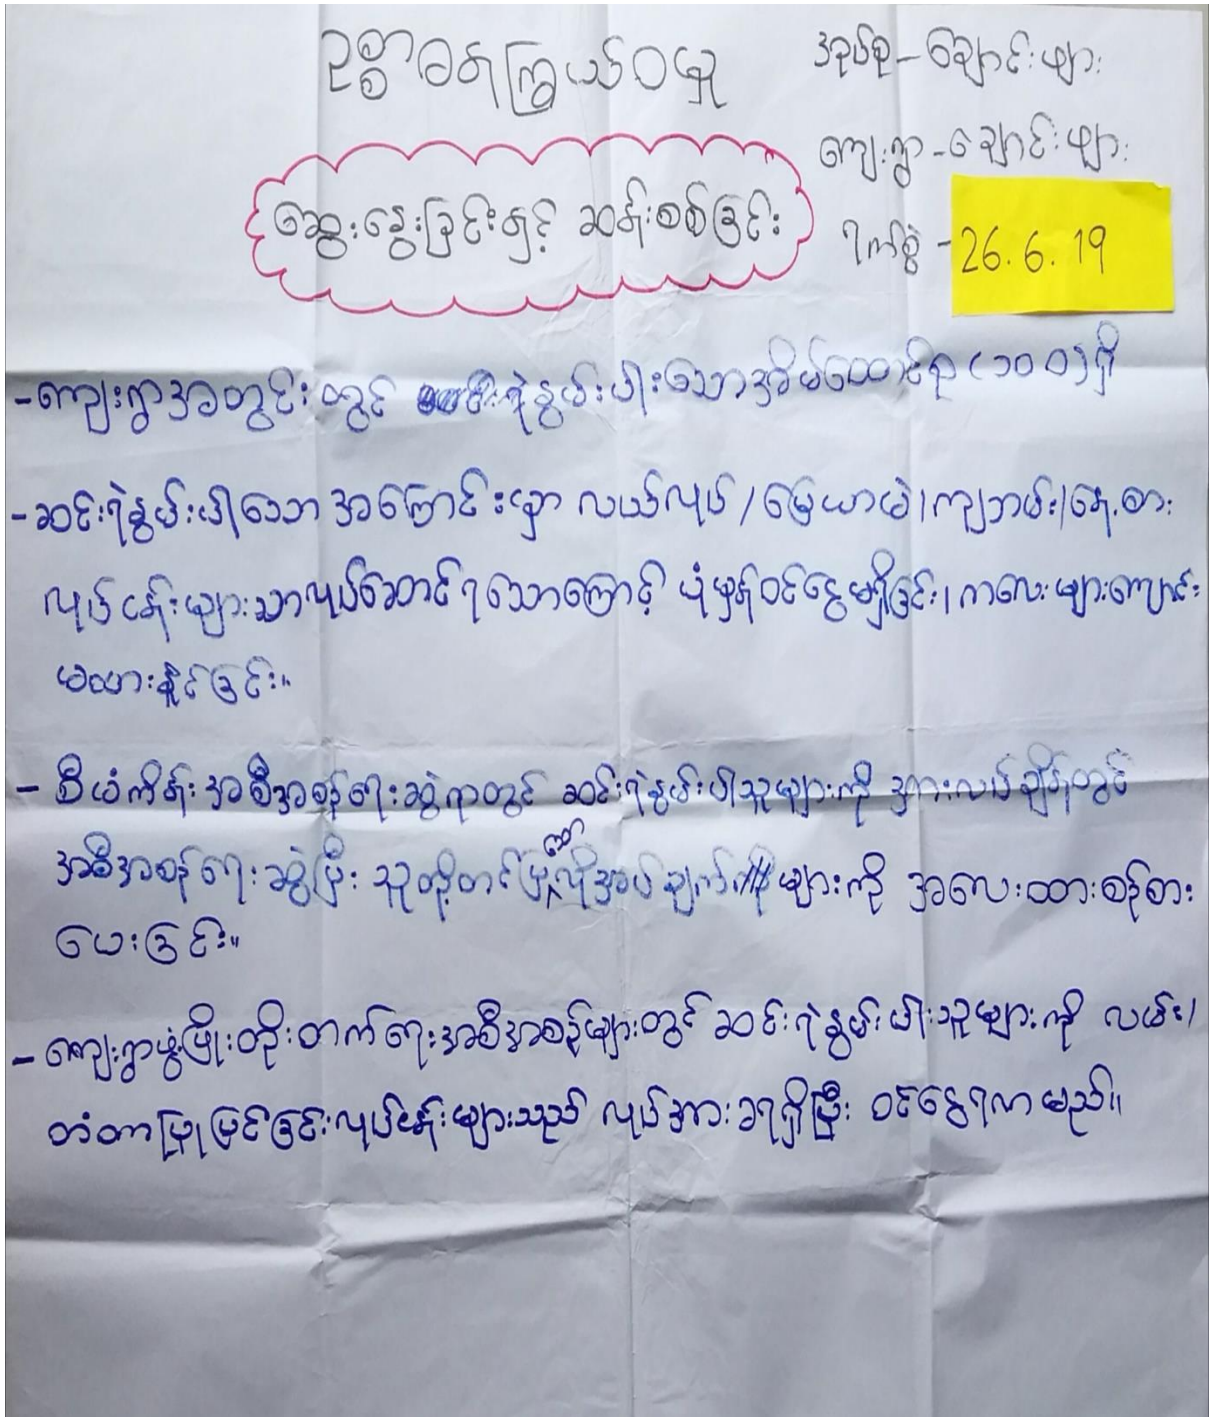 ဥစ္စာဓနကြွယ်ဝမှု
အုပ်စု - ချောင်းဖျား
ကျေးရွာ - ချောင်းဖျား
ဆွေးနွေးခြင်းနှင့် ဆန်းစစ်ခြင်း
ရက်စွဲ - 26.6.19
- ကျေးရွာအတွင်းတွင် ဆင်းရဲနွမ်းပါးသောအိမ်ထောင်စု (၁၀၀) ရှိ
- ဆင်းရဲနွမ်းပါးသော အကြောင်းမှာ လယ်လုပ် / မြေယာမဲ့ / ကျဘမ်း / နေ့စား
လုပ်ငန်းများသာလုပ်ဆောင်ရသောကြောင့် ပုံမှန်ဝင်ငွေမရှိခြင်း၊ ကလေးများကျောင်း
မထားနိုင်ခြင်း။
- စီမံကိန်းအစီအစဉ်ရေးဆွဲရာတွင် ဆင်းရဲနွမ်းပါးသူများကို အားလပ်ချိန်တွင်
အစီအစဉ်ရေးဆွဲပြီး သူတို့တင်ပြသောလိုအပ်ချက်များကို အလေးထားစဉ်းစား
ပေးခြင်း။
- ကျေးရွာဖွံ့ဖြိုးတိုးတက်ရေးအစီအစဉ်များတွင် ဆင်းရဲနွမ်းပါးသူများကို လမ်း၊
တံတာပြုပြင်ခြင်းလုပ်ငန်းများသည် လုပ်အားခရရှိပြီး ဝင်ငွေရလာမည်။